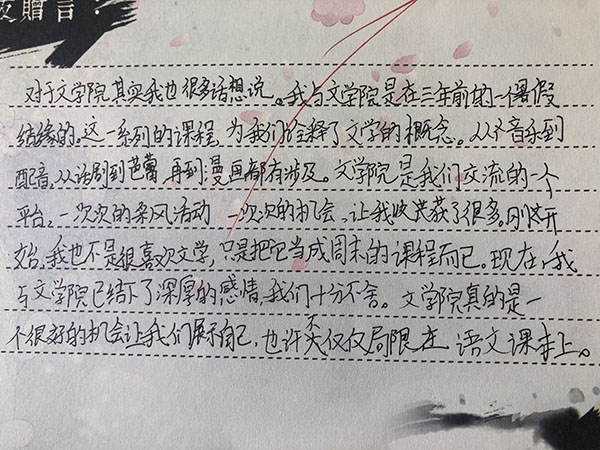 友赠言:
对于文学院其实我也很多话想说。我与文学院是在三年前的一个暑假
结缘的。这一系列的课程,为我们诠释了文学的概念。从音乐到
配音,从话剧到芭蕾,再到漫画都有涉及。文学院是我们交流的一个
平台,一次次的采风活动 一次次的机会,让我收获了很多。刚
开始,我也不是很喜欢文学,只是把它当成周末的课程而已。现在,我
与文学院已结下了深厚的感情,我们十分不舍。文学院真的是一
个很好的机会让我们展示自己,也许不仅仅局限在 语文课本上。